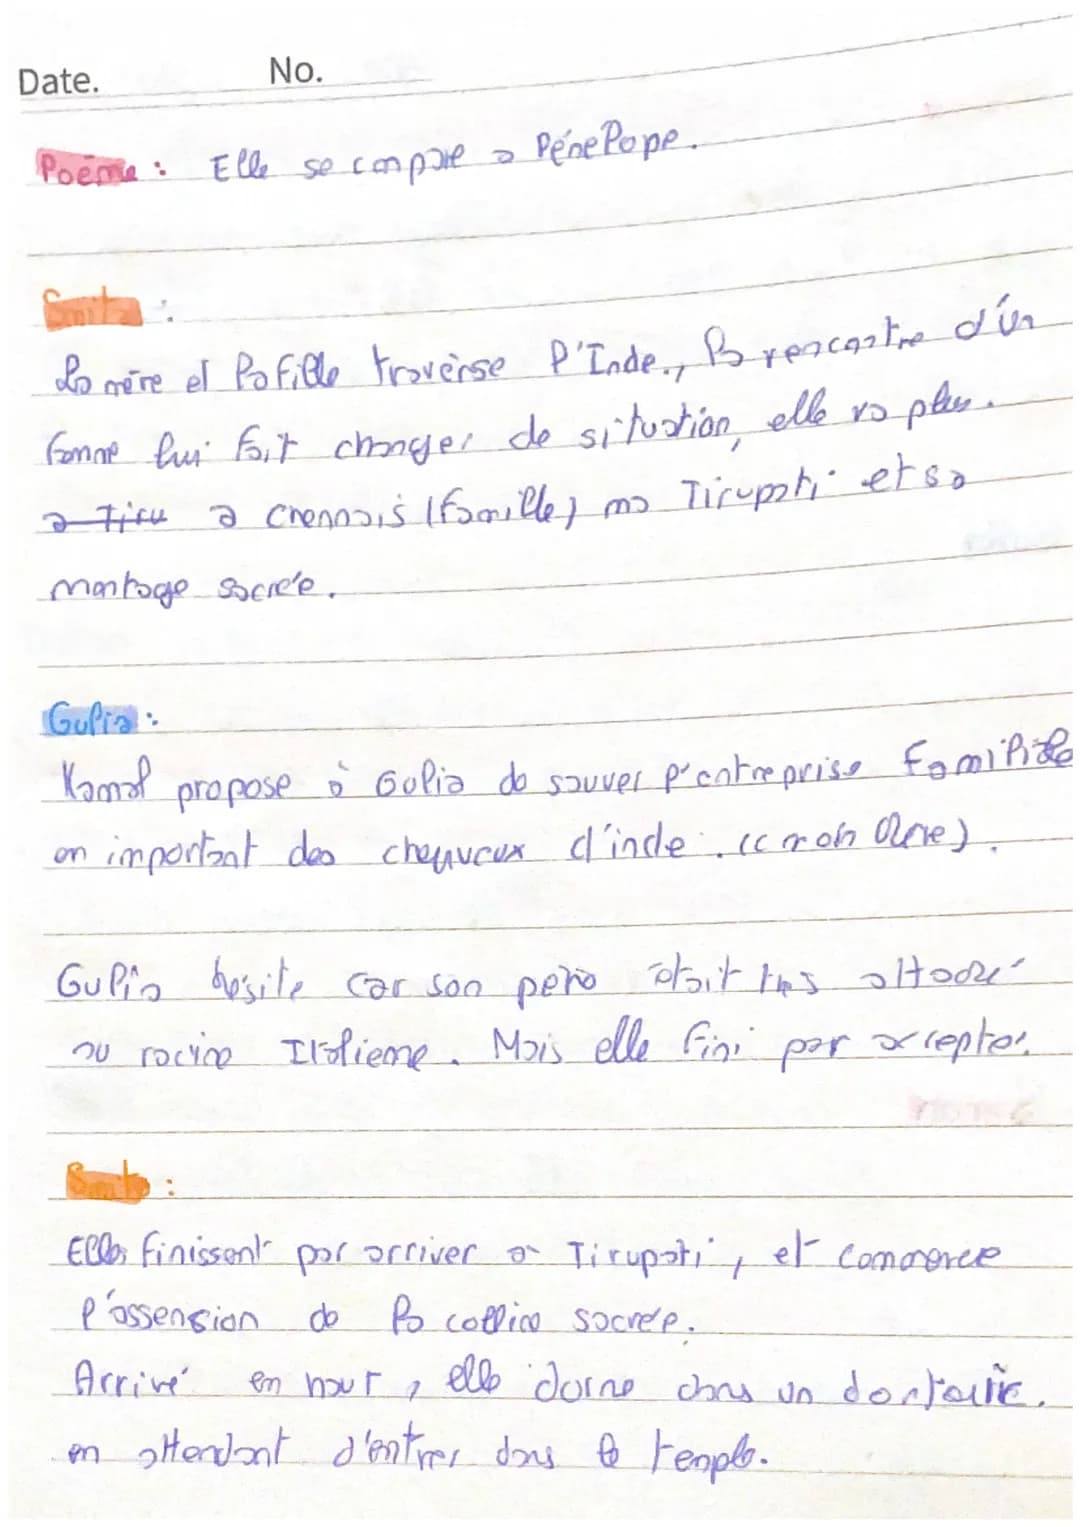 Date. No.
Poème : Elle se compare a Pénelope.
Smita :
La mère et la fille traverse l'Inde., la rencontre d'un
femme lui fait changer de situation, elle va plus.
a Tiru a Chennais (famille) ma Tirupati et sa
montage sacrée.
Gulia :
Kamal propose à Gulia de sauver l'entreprise familiale
en important des cheuveux d'inde. (
Gulia hésite car son père était très attaché
au racine Italiene. Mais elle fini par accepter.
Smita :
Elles finissent par arriver a Tirupati, et commence
l'assension de la colline sacrée.
Arrivé en haut, elle dorne dans un dortoire.
en attendant d'entrer dans le temple.